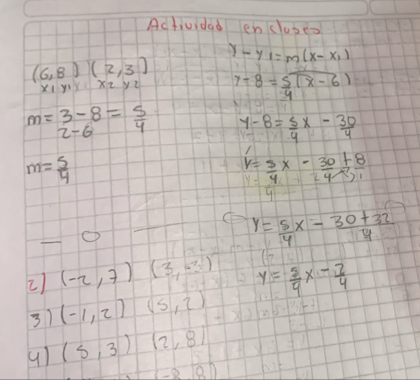 Actividad en clases
(6,8) (2,3)
x₁ y₁ x₂ y₂
m = 3-8/2-6 = 5/4
m = 5/4
y - y₁ = m(x - x₁)
y - 8 = 5/4 (x - 6)
y - 8 = 5/4 x - 30/4
y = 5/4 x - 30/4 + 8/1
y = 5/4 x - 30 + 32/4
y = 5/4 x - 2/4
2) (-2, 7)
3) (-1, 2) (5, 2)
4) (5, 3) (2, 8)